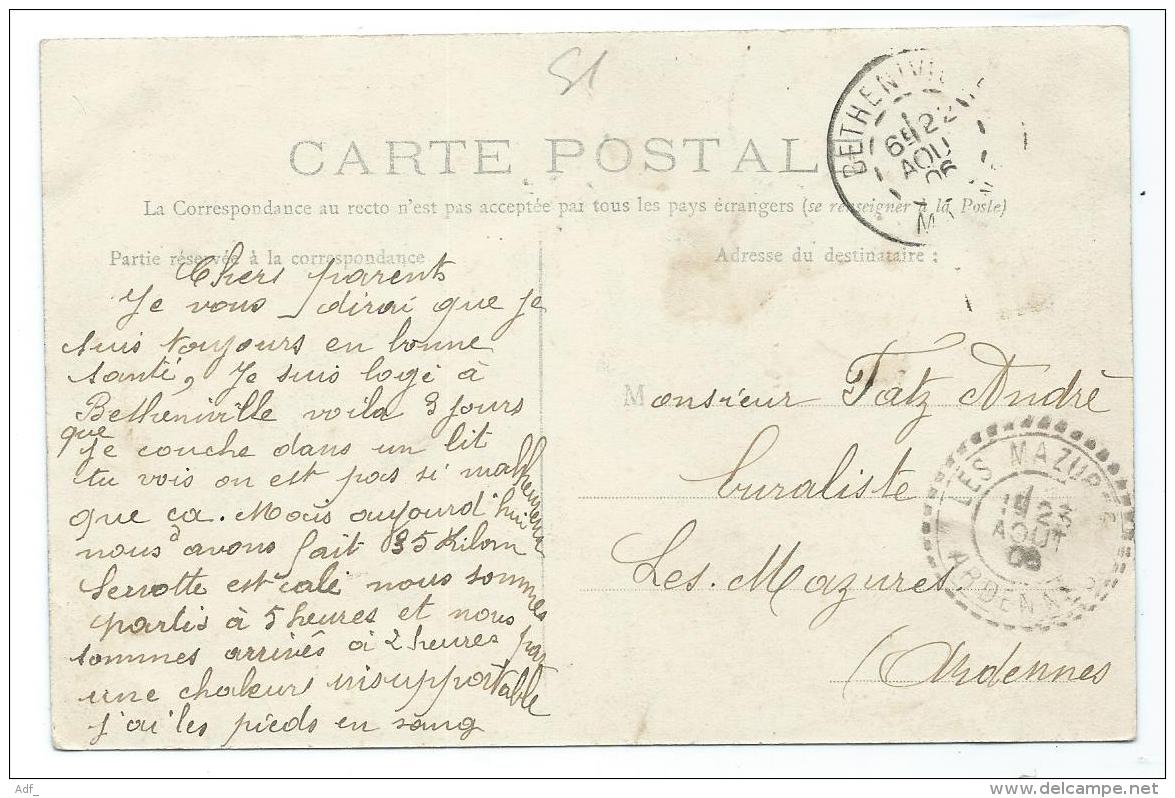 51
CARTE POSTALE
La Correspondance au recto n'est pas acceptée par tous les pays étrangers (se renseigner à la Poste)
Partie réservée à la correspondance
Adresse du destinataire :
BETHENIVILLE
6E 22
AOU
06
Chers parents
Je vous dirai que je
suis toujours en bonne
santé, Je suis logé à
Betheniville voila 3 jours
que je couche dans un lit
tu vois on est pas si malheureux
que ça. Mais aujourd'hui
nous avons fait 35 Kilom
est calé nous sommes
partis à 5 heures et nous
sommes arrivés à 2 heures par
une chaleurs insupportable
j'ai les pieds en sang
Monsieur Fatz André
buraliste
Les. Mazures
(Ardennes
LES MAZURES
1E 23
AOUT
06
ARDENNES
Adf_
www.delcampe.net